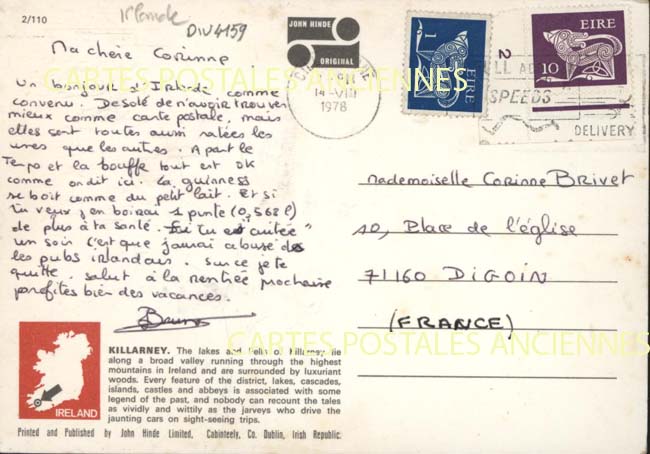 2/110
Irlande
DIV4159
JOHN HINDE
ORIGINAL
14 VIII
1978
1
EIRE
2
EIRE
10
SPEEDS
DELIVERY
CARTES POSTALES ANCIENNES
Ma chère Corinne
Un bonjour d'Irlande comme
convenu. Desolé de n'avoir trouver
mieux comme carte postale, mais
elles sont toutes aussi ratées les
unes que les autres. A part le
Temps et la bouffe tout est OK
comme on dit ici. La guinness
se boit comme du petit lait. Et si
tu veux j'en boirai 1 punte (0,568 l)
de plus à ta santé. Si tu cuitée
un soir c'est que j'aurai abusé des
les pubs irlandais. Sur ce je te
quitte. Salut à la rentrée prochaine
profites bien des vacances.
Bruno
Mademoiselle Corinne BRIVET
10, Place de l'église
71160 DIGOIN
(FRANCE)
CARTES POSTALES ANCIENNES
IRELAND
KILLARNEY. The lakes and fells of Killarney lie
along a broad valley running through the highest
mountains in Ireland and are surrounded by luxuriant
woods. Every feature of the district, lakes, cascades,
islands, castles and abbeys is associated with some
legend of the past, and nobody can recount the tales
as vividly and wittily as the jarveys who drive the
jaunting cars on sight-seeing trips.
Printed and Published by John Hinde Limited, Cabinteely, Co. Dublin, Irish Republic.